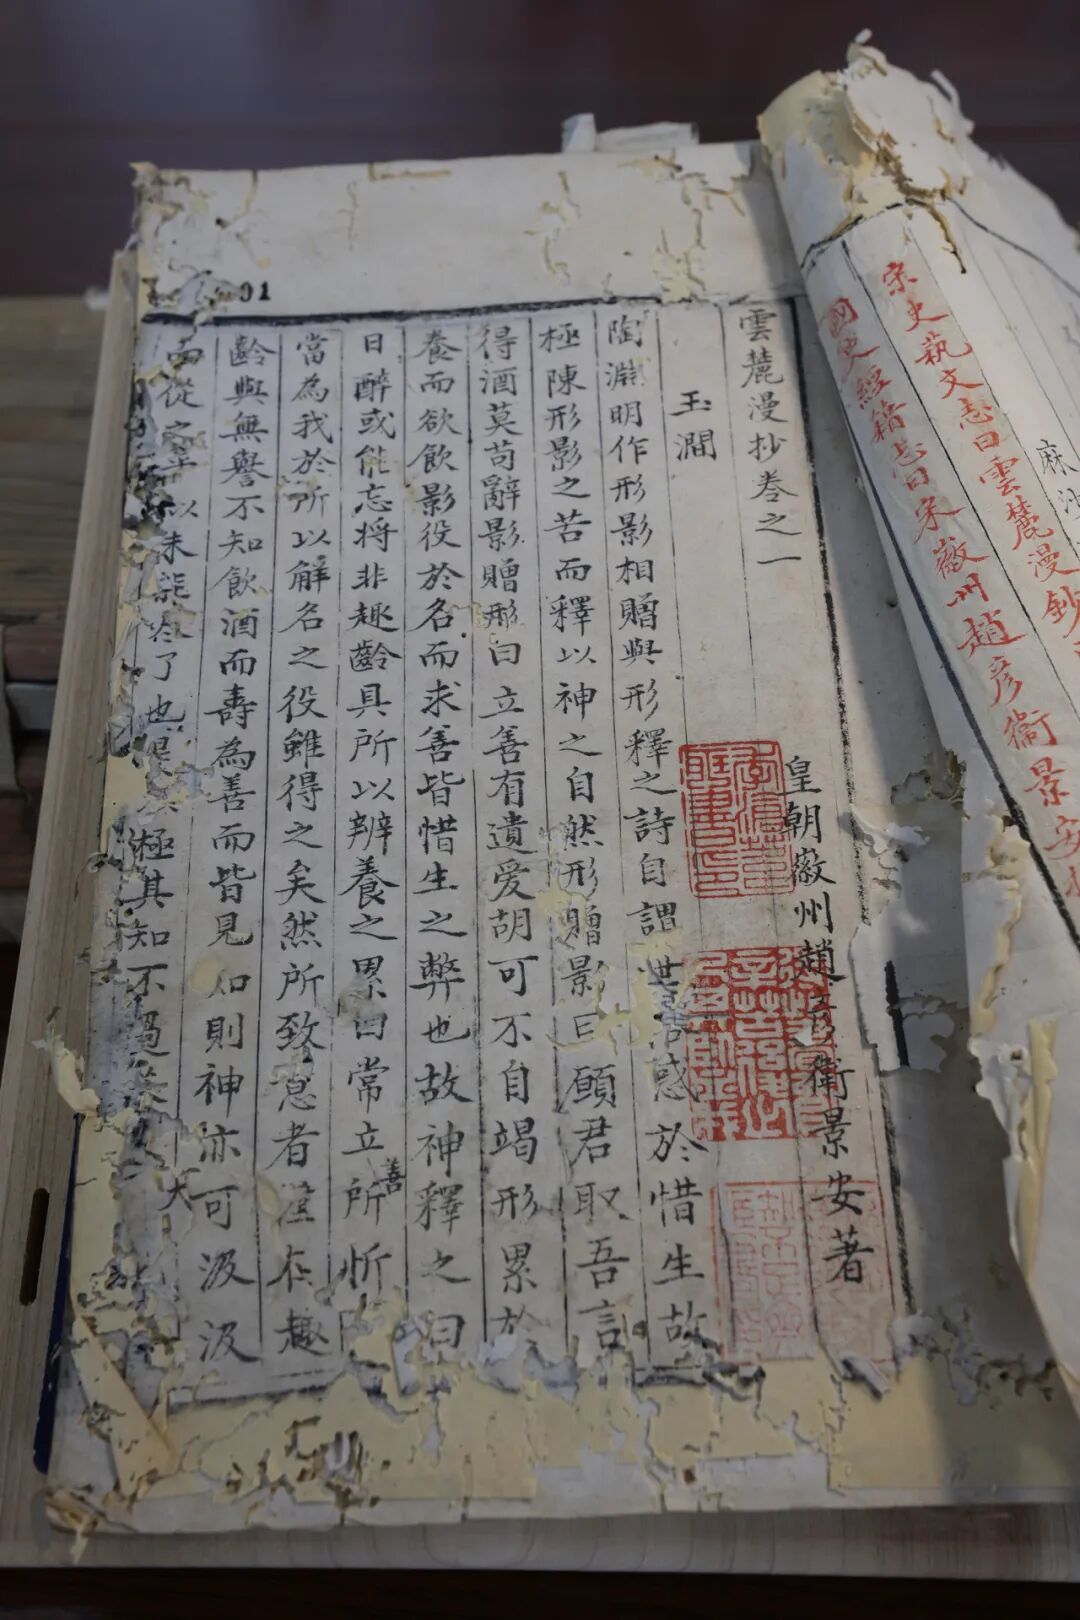 宋史藝文志曰雲麓漫鈔
國史經籍志曰宋徽州趙彥衛景安
麻沙
01
雲麓漫抄卷之一
皇朝徽州趙彥衛景安著
玉澗
陶淵明作形影相贈與形釋之詩自謂世俗惑於惜生故
極陳形影之苦而釋以神之自然形贈影曰願君取吾言
得酒莫苟辭影贈形曰立善有遺愛胡可不自竭形累於
養而欲飲影役於名而求善皆惜生之弊也故神釋之曰
日醉或能忘將非趣齡具所以辨養之累曰常立善所忻
當為我於所以解名之役雖得之矣然所致意者僅在趣
齡與無譽不知飲酒而壽為善而皆見知則神亦可汲汲
而從之 以未能 了也 極其知不過 天